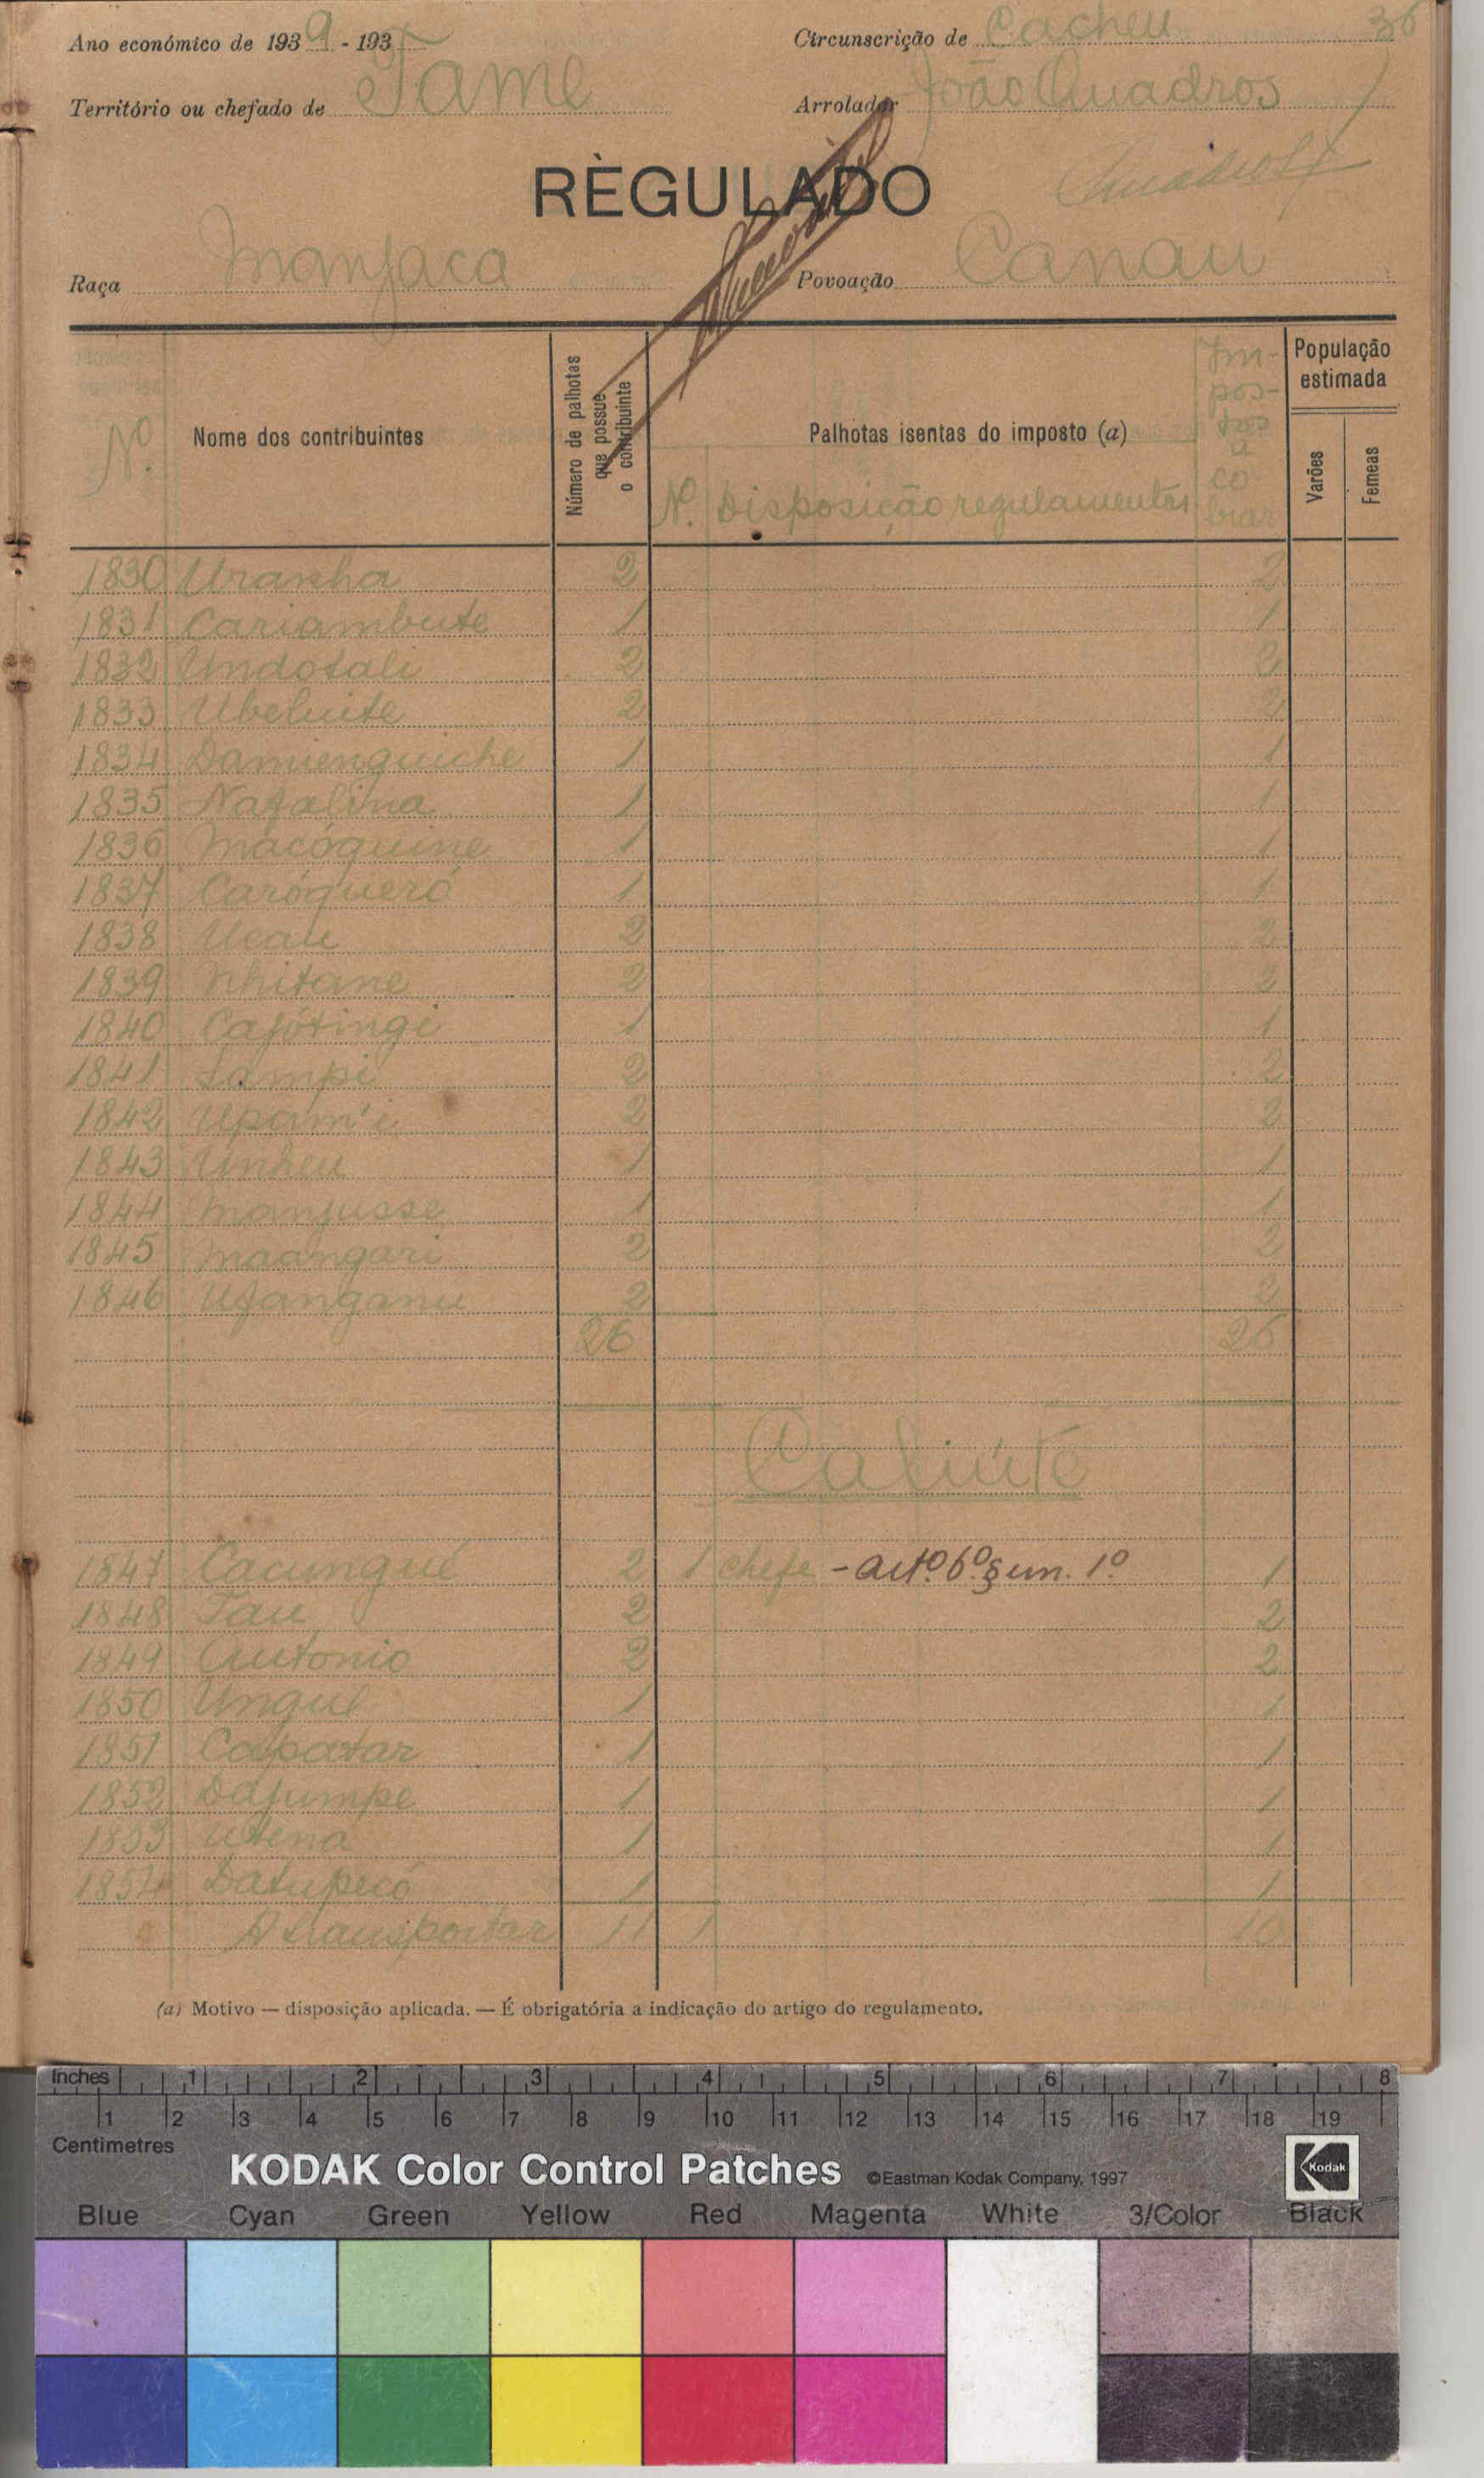 36
Ano económico de 1939 - 193
Circunscrição de Cacheu
Território ou chefado de Tame
Arrolador João Quadros
RÈGULADO
Raça Manjaca
Povoação Canau
Nº
Nome dos contribuintes
Número de palhotas que possue o contribuinte
Palhotas isentas do imposto (a)
Nº. Disposição regulamentar
Im-
pos-
tos
a
co-
brar
População estimada
Varões
Femeas
1830 Uransha 2 2
1831 Cariambute 1 1
1832 Undotali 2 2
1833 Ubeluite 2 2
1834 Damienguiche 1 1
1835 Natalina 1 1
1836 Macóquine 1 1
1837 Caróqueró 1 1
1838 Ucau 2 2
1839 Nhitane 2 2
1840 Cajótingi 1 1
1841 Sampi 2 2
1842 Upam'i 2 2
1843 Unheu 1 1
1844 Manjusse 1 1
1845 Maangari 2 2
1846 Ufanganu 2 2
26 26
Caliúte
1847 Cacungué 2 1 chefe - artº. 6º § un. 1º 1
1848 Tau 2 2
1849 Antonio 2 2
1850 Ungul 1 1
1851 Capatar 1 1
1852 Dajumpe 1 1
1853 Utena 1 1
1854 Datupecó 1 1
A transportar 11 1 10
(a) Motivo — disposição aplicada. — É obrigatória a indicação do artigo do regulamento.
Inches 1 2 3 4 5 6 7 8
1 2 3 4 5 6 7 8 9 10 11 12 13 14 15 16 17 18 19
Centimetres
KODAK Color Control Patches ©Eastman Kodak Company, 1997 Kodak
Blue Cyan Green Yellow Red Magenta White 3/Color Black